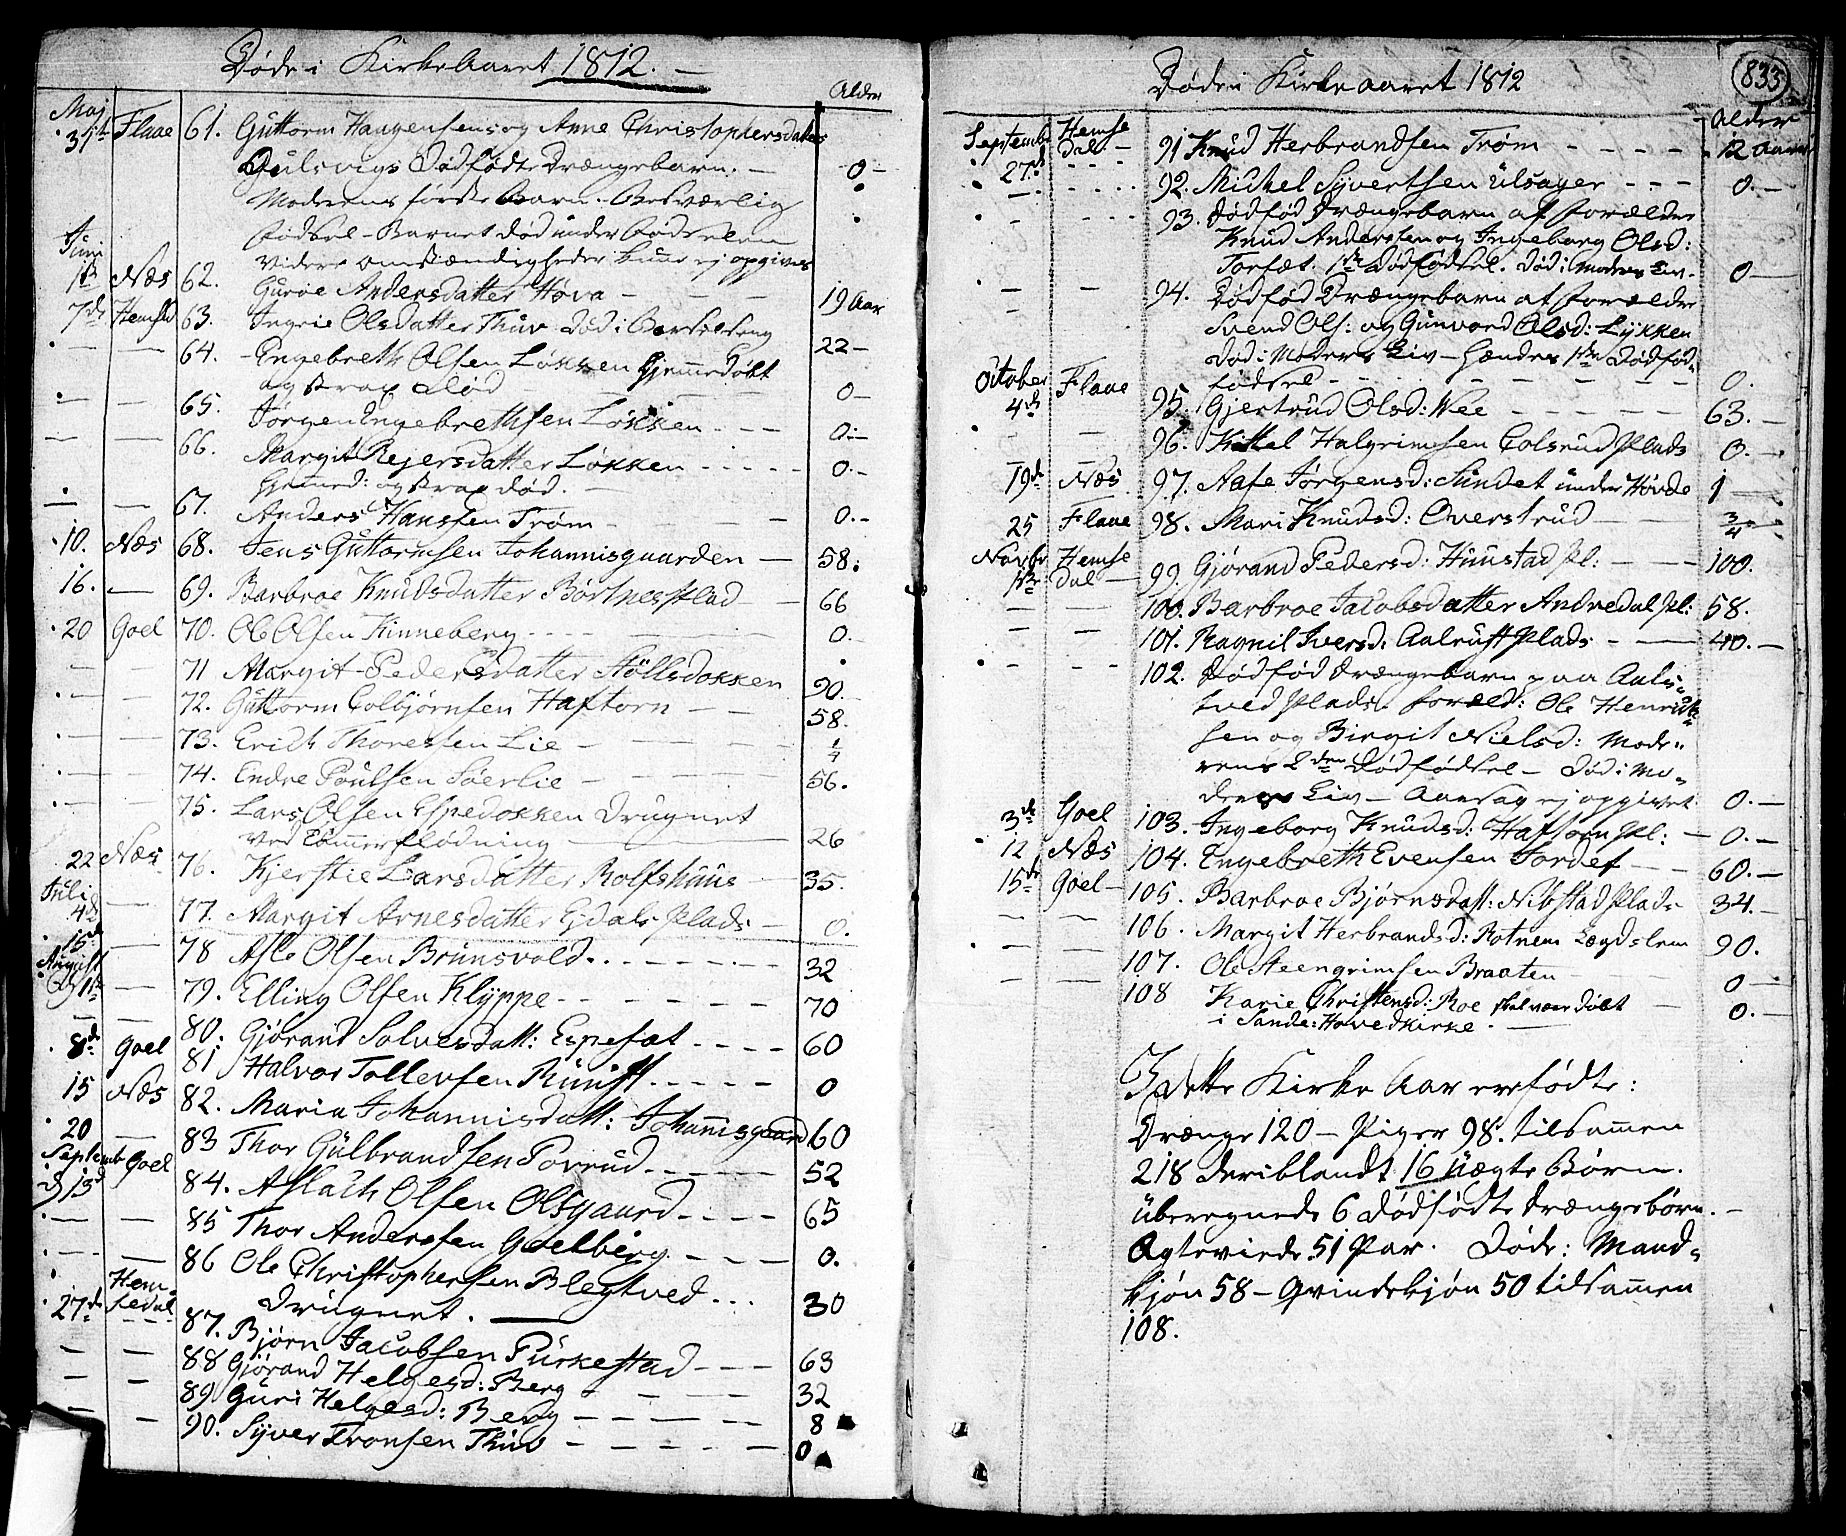 Døde i Kirke Aaret 1812.
Alder
Maj
31te Flaae 61. Guttorm Haagensens og Anne Christophersdatters
Gulsvigs Dødfødte Drængebarn. — 0 —
Moderens første Barn. Besværlig
Fødsel — Barnet død under Fødselen
videre omstændigheder kuns ej opgives
Juni
1te Næs 62. Guroe Andersdatter Hova — 19 Aar
7de Hemsed 63. Ingrie Olsdatter Thuv død i Barselseng 22 —
— — 64. Engebreth Olsen Løkken Hjemmedøbt
og strax død — 0 —
— — 65. Jørgen Engebrethsen Løkken — 0. —
— — 66. Margit Rejersdatter Løkken — 0. —
Hjemmed: og strax død. —
— — 67. Anders Hanssen Trøm — 0. —
10. Næs 68. Jens Guttormsen Johannisgaarden — 58.
16. — 69. Barbroe Knudsdatter Børtnes Plad — 66
20 Goel 70. Ole Olsen Kinneberg — 0.
— 71 Margit Pedersdatter Stöllsdokken 90.
— — 72. Guttorm Colbjørnsen Haftorn — 58.
— — 73. Erich Thoressen Lie — 1/4
— — 74. Endre Poulsen Søerlie — 56.
— — 75. Lars Olsen Espedokken Drugnet
ved Tømmerflødning — 26
22 Næs 76. Kjerstie Larsdatter Rolfshuus — 35.
Juli
4de — 77. Margit Arnesdatter Ejdals Plads — 0.
15de — 78 Asle Olsen Brunsvold. 32
August
d 1te — 79. Elling Olsen Klyppe 70
— — 80. Gjørand Solvesdatt: Espeset 60
8de Goel 81 Halvor Tollevsen Ruust 0
15 Næs 82. Maria Johannisdatt: Johannisgaard 60
20 — 83 Thor Gulbrandsen Porrud 52
Septemb
d 13de Goel 84. Aslach Olsen Olsgaard 65
— — 85 Thor Anderssen Goelberg 0.
— — 86 Ole Christophersen Blegtved
Drugnet. — 30
27de Hemsedal 87. Bjørn Jacobsen Purkestad 63
— — 88 Gjørand Helgesd: Berg 32
— — 89 Guri Helgesd: Berg 8
— — 90. Syver Tronsen Thuv 0
Døde i Kirke aaret 1812
833
Alder
September Hemse
27de dal 91 Knud Herbrandsen Trøm — 12 Aar
92. Michel Syvertsen Ulsager 0. —
93. Dødfød Drængebarn af Forælder
Knud Anderssen og Ingeborg Olsd:
Torset. 1ste Dødfødsel. Død i Moders Liv. 0 —
— — 94. Dødfød Drængebarn af Forælder
Svend Ols: og Gunvord Olsd: Lykken
død i Moders Liv — hændes 1ste Dødfød-
fødsel — 0.
October
4de Flaae 95. Gjertrud Olsd: Wee 63. —
— — 96. Kittel Halgrimsen Colsrud Plads 0. —
19de Næs 97. Aase Jørgensd: Slindet under Hovde 1 —
25 Flaae 98. Mari Knudsd: Overstrud — 3/4 —
Novbr Hemse
1ste dal — 99. Gjørand Pedersd: Huustad Pl: — 100.
— — 100. Barbroe Jacobsdatter Andredal Pl: 58.
— — 101. Ragnil Iversd: Aalrust Plads — 40. —
— — 102. Dødfød Drængebarn paa Aals-
tved Plads. Foræld: Ole Henrik-
sen og Birgit Nielsd: Mode-
rens 2den Dødfødsel — Død i Mo-
ders Liv — Aarsag ej opgivet. 0. —
3de Goel 103. Ingeborg Knudsd: Haftorn Pl: — 0. —
12 Næs 104. Engebreth Evensen Jordet — 60. —
15de Goel — 105. Barbroe Bjørnsdatt: Nibstad Plads 34. —
— — 106. Margit Herbrandsd: Rotnem Lægdslem 90.
— — 107. Ole Steengrimsen Braaten 0 —
— — 108 Karie Christensd: Roe skal være døbt
i Sande: Hovedkirke. — 0. —
I dette Kirke Aar ere fødte:
Drænge 120 — Piger 98. tilsammen
218 deriblandt 16 Uægte Børn.
uberegnede 6 Dødfødte Drængebørn. —
Ægteviede 51 Par. Døde: Mand-
kjøn 58 — Qvindekjøn 50 tilsammen
108.